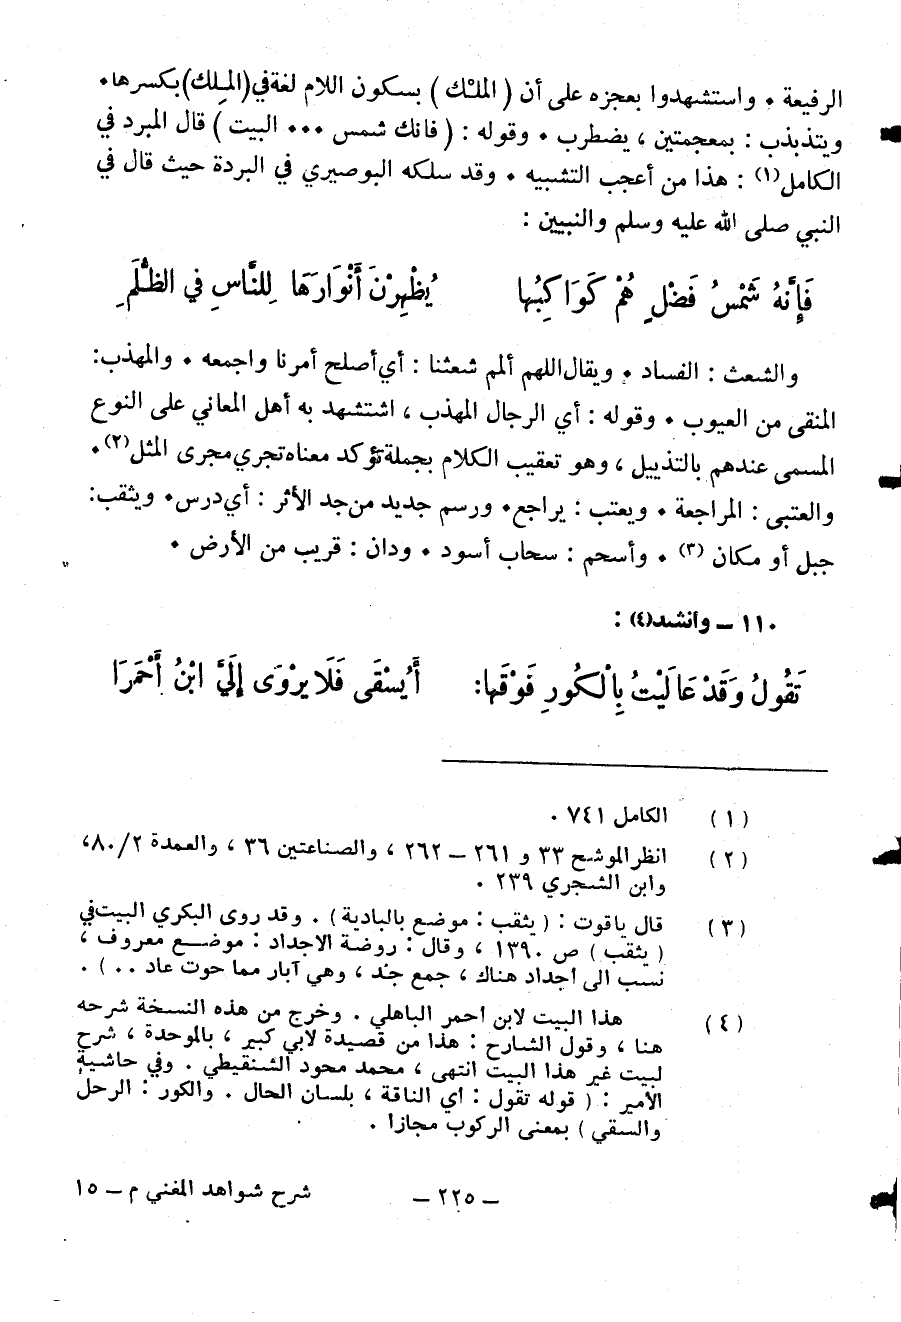 الرفيعة • واستشهدوا بعجزه على أن ( الملْك ) بسكون اللام لغة في (الملِك) بكسرها•
ويتذبذب : بمعجمتين ، يضطرب • وقوله : ( فانك شمس ••• البيت ) قال المبرد في
الكامل(١) : هذا من أعجب التشبيه • وقد سلكه البوصيري في البردة حيث قال في
النبي صلى الله عليه وسلم والنبيين :
فَإِنَّهُ شَمْسُ فَضْلٍ هُمْ كَوَاكِبُها يُظْهِرْنَ أَنْوَارَهَا لِلنَّاسِ فِي الظُّلَمِ
والشعث : الفساد • ويقال اللهم ألمم شعثنا : أي أصلح أمرنا واجمعه • والمهذب:
المنقى من العيوب • وقوله : أي الرجال المهذب ، اشتشهد به أهل المعاني على النوع
المسمى عندهم بالتذييل ، وهو تعقيب الكلام بجملة تؤكد معناه تجري مجرى المثل(٢)•
والعتبى : المراجعة • ويعتب : يراجع• ورسم جديد من جد الأثر : أي درس• ويثقب:
جبل أو مكان (٣) • وأسحم : سحاب أسود • ودان : قريب من الأرض •
١١٠ ــ وانشد(٤) :
تَقُولُ وَقَدْ عَالَيْتُ بِالْكُورِ فَوْقَها: أَيُسْقَى فَلَا يرْوَى إِلَيَّ ابْنُ أَحْمَرَا
(١) الكامل ٧٤١ .
(٢) انظر الموشح ٣٣ و ٢٦١ ــ ٢٦٢ ، والصناعتين ٣٦ ، والعمدة ٨٠/٢،
وابن الشجري ٢٣٩ .
(٣) قال ياقوت : ( يثقب : موضع بالبادية ) . وقد روى البكري البيت في
( يثقب ) ص ١٣٩٠ ، وقال : روضة الاجداد : موضع معروف ،
نسب الى اجداد هناك ، جمع جند ، وهي آبار مما حوت عاد .. ) .
(٤) هذا البيت لابن احمر الباهلي . وخرج من هذه النسخة شرحه
هنا ، وقول الشارح : هذا من قصيدة لابي كبير ، بالموحدة ، شرح
لبيت غير هذا البيت انتهى ، محمد محود الشنقيطي . وفي حاشية
الأمير : ( قوله تقول : اي الناقة ، بلسان الحال . والكور : الرحل
والسقي ) بمعنى الركوب مجازا .
ــ ٢٢٥ ــ شرح شواهد المغني م ــ ١٥